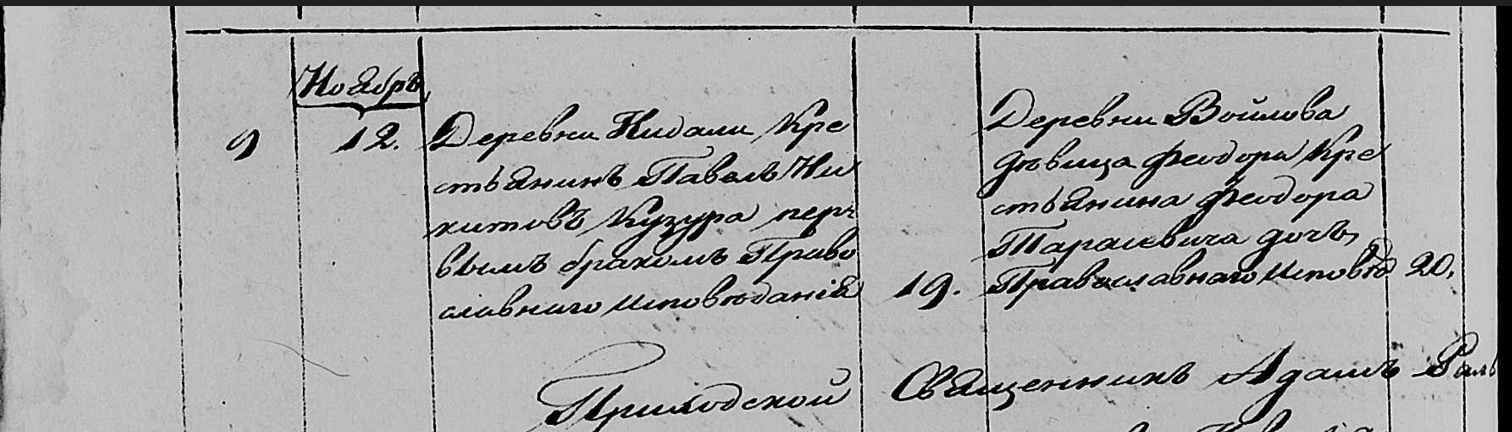 Ноябрь
9 12. Деревни Нидали Кре
стьянинъ Павелъ Ни
китовъ Кузура пер
вымъ бракомъ Право
славнаго исповѣданія 19.
Деревни Войлова
дѣвица Феодора Кре
стьянина Феодора
Тарасевича дочь,
Православнаго исповѣд 20.
Приходской Священникъ Адамъ